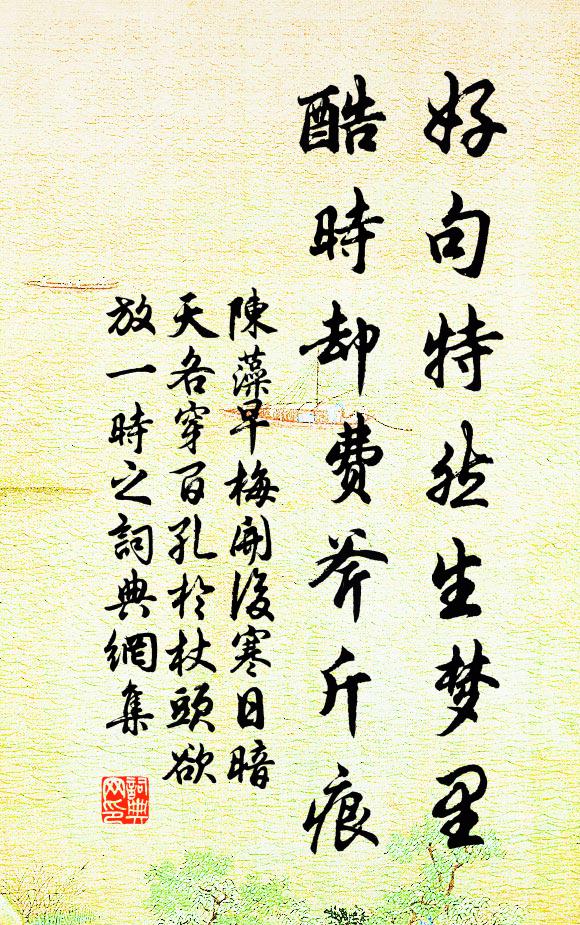 好句特然生梦里
酷時却费斧斤痕
陳藻早梅開後寒日暗
天各穿百孔於杖頭欲
放一時之詞典網集
詞典
网印